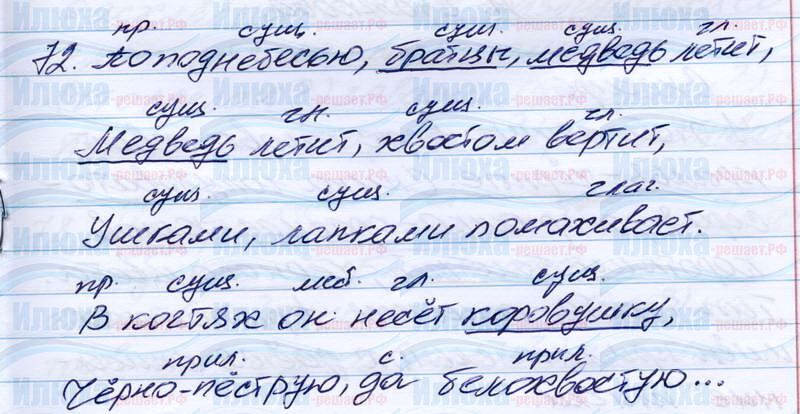 пр. сущ. сущ. сущ. гл.
72. По поднебесью, братцы, медведь летит,
сущ. гл. сущ. гл.
Медведь летит, хвостом вертит,
сущ. сущ. глаг.
Ушками, лапками помахивает.
пр. сущ. мест. гл. сущ.
В когтях он несёт коровушку,
прил. с. прил.
Чёрно-пёструю, да белохвостую...